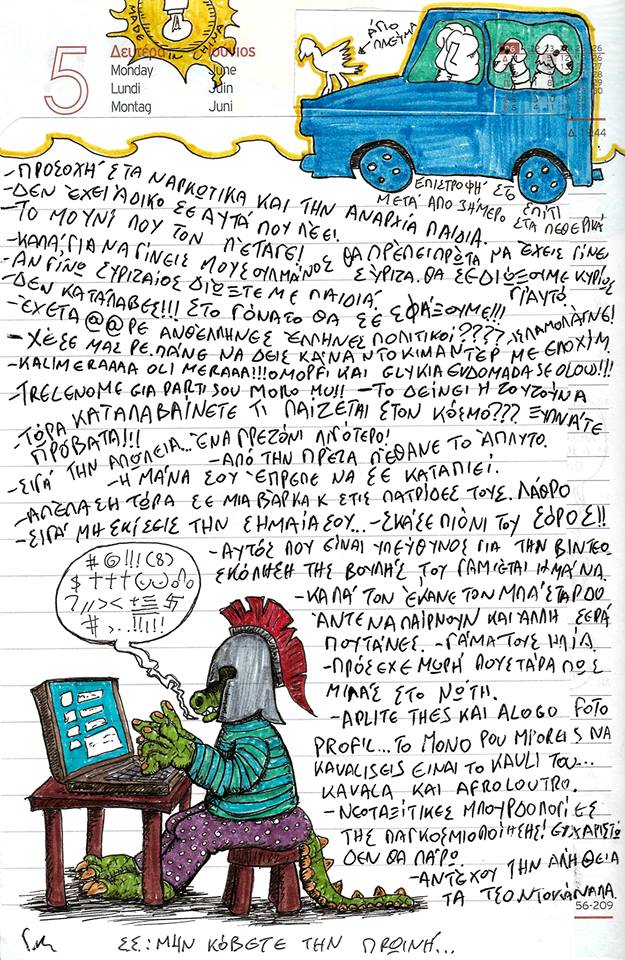 MADE IN CHINA
5
Δευτέρα Ιούνιος
Monday June
Lundi Juin
Montag Juni
ΆΓΙΟ ΠΝΕΥΜΑ
Δ. 1944
ΕΠΙΣΤΡΟΦΉ ΣΤΟ ΣΠΙΤΙ
ΜΕΤΆ ΑΠΟ 3ΉΜΕΡΟ ΣΤΑ ΠΕΘΕΡΙΚΆ
-ΠΡΟΣΟΧΉ ΣΤΑ ΝΑΡΚΩΤΙΚΑ ΚΑΙ ΤΗΝ ΑΝΑΡΧΊΑ ΠΑΙΔΙΑ.
-ΔΕΝ ΈΧΕΙ ΆΔΙΚΟ ΣΕ ΑΥΤΆ ΠΟΥ ΛΈΕΙ.
-ΤΟ ΜΟΥΝΊ ΠΟΥ ΤΟΝ ΠΈΤΑΓΕ!
-ΚΑΛΆ, ΓΙΑ ΝΑ ΓΊΝΕΙΣ ΜΟΥΣΟΥΛΜΆΝΟΣ ΘΑ ΠΡΈΠΕΙ ΠΡΏΤΑ ΝΑ ΈΧΕΙΣ ΓΊΝΕΙ ΣΎΡΙΖΑ. ΘΑ ΣΕ ΔΙΏΞΟΥΜΕ ΚΥΡΊΩΣ ΓΙ'ΑΥΤΌ.
-ΑΝ ΓΊΝΩ ΣΥΡΙΖΑΊΟΣ ΔΙΏΞΤΕ ΜΕ ΠΑΙΔΙΆ.
-ΔΕΝ ΚΑΤΆΛΑΒΕΣ!!! ΣΤΟ ΓΌΝΑΤΟ ΘΑ ΣΕ ΣΦΆΞΟΥΜΕ!!!
-ΈΧΕΤΑ @@ΡΕ ΑΝΘΈΛΛΗΝΕΣ ΈΛΛΗΝΕΣ ΠΟΛΙΤΙΚΟΊ????
-ΧΈΣΕ ΜΑΣ ΡΕ. ΠΆΝΕ ΝΑ ΔΕΙΣ ΚΑ'ΝΑ ΝΤΟΚΙΜΑΝΤΈΡ ΜΕ
-KALIMERAAAA OLI MERAAA!!! OMORFI KAI GLYKIA EVDOMADA SE OLOUS!!!
-TRELENOME GIA PARTI SOU MORO MU!! -ΤΟ ΔΕΊΝΕΙ Η ΖΟΥΖΟΎΝΑ
-ΤΏΡΑ ΚΑΤΑΛΑΒΑΊΝΕΤΕ ΤΙ ΠΑΊΖΕΤΑΙ ΣΤΟΝ ΚΌΣΜΟ??? ΞΥΠΝΆΤΕ ΠΡΌΒΑΤΑ!!!
-ΣΙΓΆ ΤΗΝ ΑΠΏΛΕΙΑ... ΈΝΑ ΠΡΕΖΌΝΙ ΛΙΓΌΤΕΡΟ!
-ΑΠΌ ΤΗΝ ΠΡΈΖΑ ΠΈΘΑΝΕ ΤΟ ΆΠΛΥΤΟ.
-Η ΜΆΝΑ ΣΟΥ ΈΠΡΕΠΕ ΝΑ ΣΕ ΚΑΤΑΠΙΕΊ.
-ΑΠΈΛΑΣΗ ΤΏΡΑ ΣΕ ΜΙΑ ΒΆΡΚΑ Κ ΣΤΙΣ ΠΑΤΡΊΔΕΣ ΤΟΥΣ. ΛΆΘΡΟ
-ΣΙΓΆ ΜΗ ΣΚΊΣΕΙΣ ΤΗΝ ΣΗΜΑΊΑ ΣΟΥ... -ΣΚΆΣΕ ΠΙΌΝΙ ΤΟΥ ΣΌΡΟΣ!!
-ΑΥΤΌΣ ΠΟΥ ΕΊΝΑΙ ΥΠΕΎΘΥΝΟΣ ΓΙΑ ΤΗΝ ΒΙΝΤΕΟ
ΣΚΌΠΗΣΗ ΤΗΣ ΒΟΥΛΉΣ ΤΟΥ ΓΑΜΙΈΤΑΙ Η ΜΆΝΑ.
-ΚΑΛΆ ΤΟΝ ΈΚΑΝΕ ΤΟΝ ΜΠΆΣΤΑΡΔΟ
ΆΝΤΕ ΝΑ ΠΑΊΡΝΟΥΝ ΚΑΙ ΆΛΛΗ ΣΕΙΡΆ
ΠΟΥΤΆΝΕΣ. -ΓΆΜΑ ΤΟΥΣ ΗΛΊΑ.
-ΠΡΌΣΕΧΕ ΜΩΡΉ ΠΟΥΣΤΆΡΑ ΠΩΣ
ΜΙΛΆΣ ΣΤΟ ΝΏΤΗ.
-APLITE THES KAI ALOGO FOTO
PROFIL... TO MONO POU MPOREIS NA
KAVALISEIS EINAI TO KAVLI TOU...
KAVALA KAI AFROLOUTRO.
-ΝΕΟΤΑΞΊΤΙΚΕΣ ΜΠΟΥΡΔΟΛΟΓΊΕΣ
ΤΗΣ ΠΑΓΚΟΣΜΙΟΠΟΊΗΣΗΣ! ΕΥΧΑΡΙΣΤΏ
ΔΕΝ ΘΑ ΠΆΡΩ.
-ΑΝΤ'ΕΧΟΥ ΤΗΝ ΑΛΉΘΕΙΑ
ΤΑ ΤΣΟΝΤΟΚΆΝΑΛΑ.
56-209
ΣΣ: ΜΗΝ ΚΌΒΕΤΕ ΤΗΝ ΠΡΩΙΝΉ...